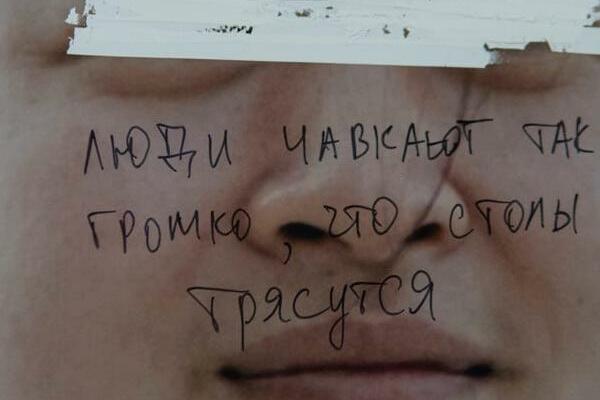 ЛЮДИ ЧАВКАЮТ ТАК
ГРОМКО, ЧТО СТОЛЫ
ТРЯСУТСЯ